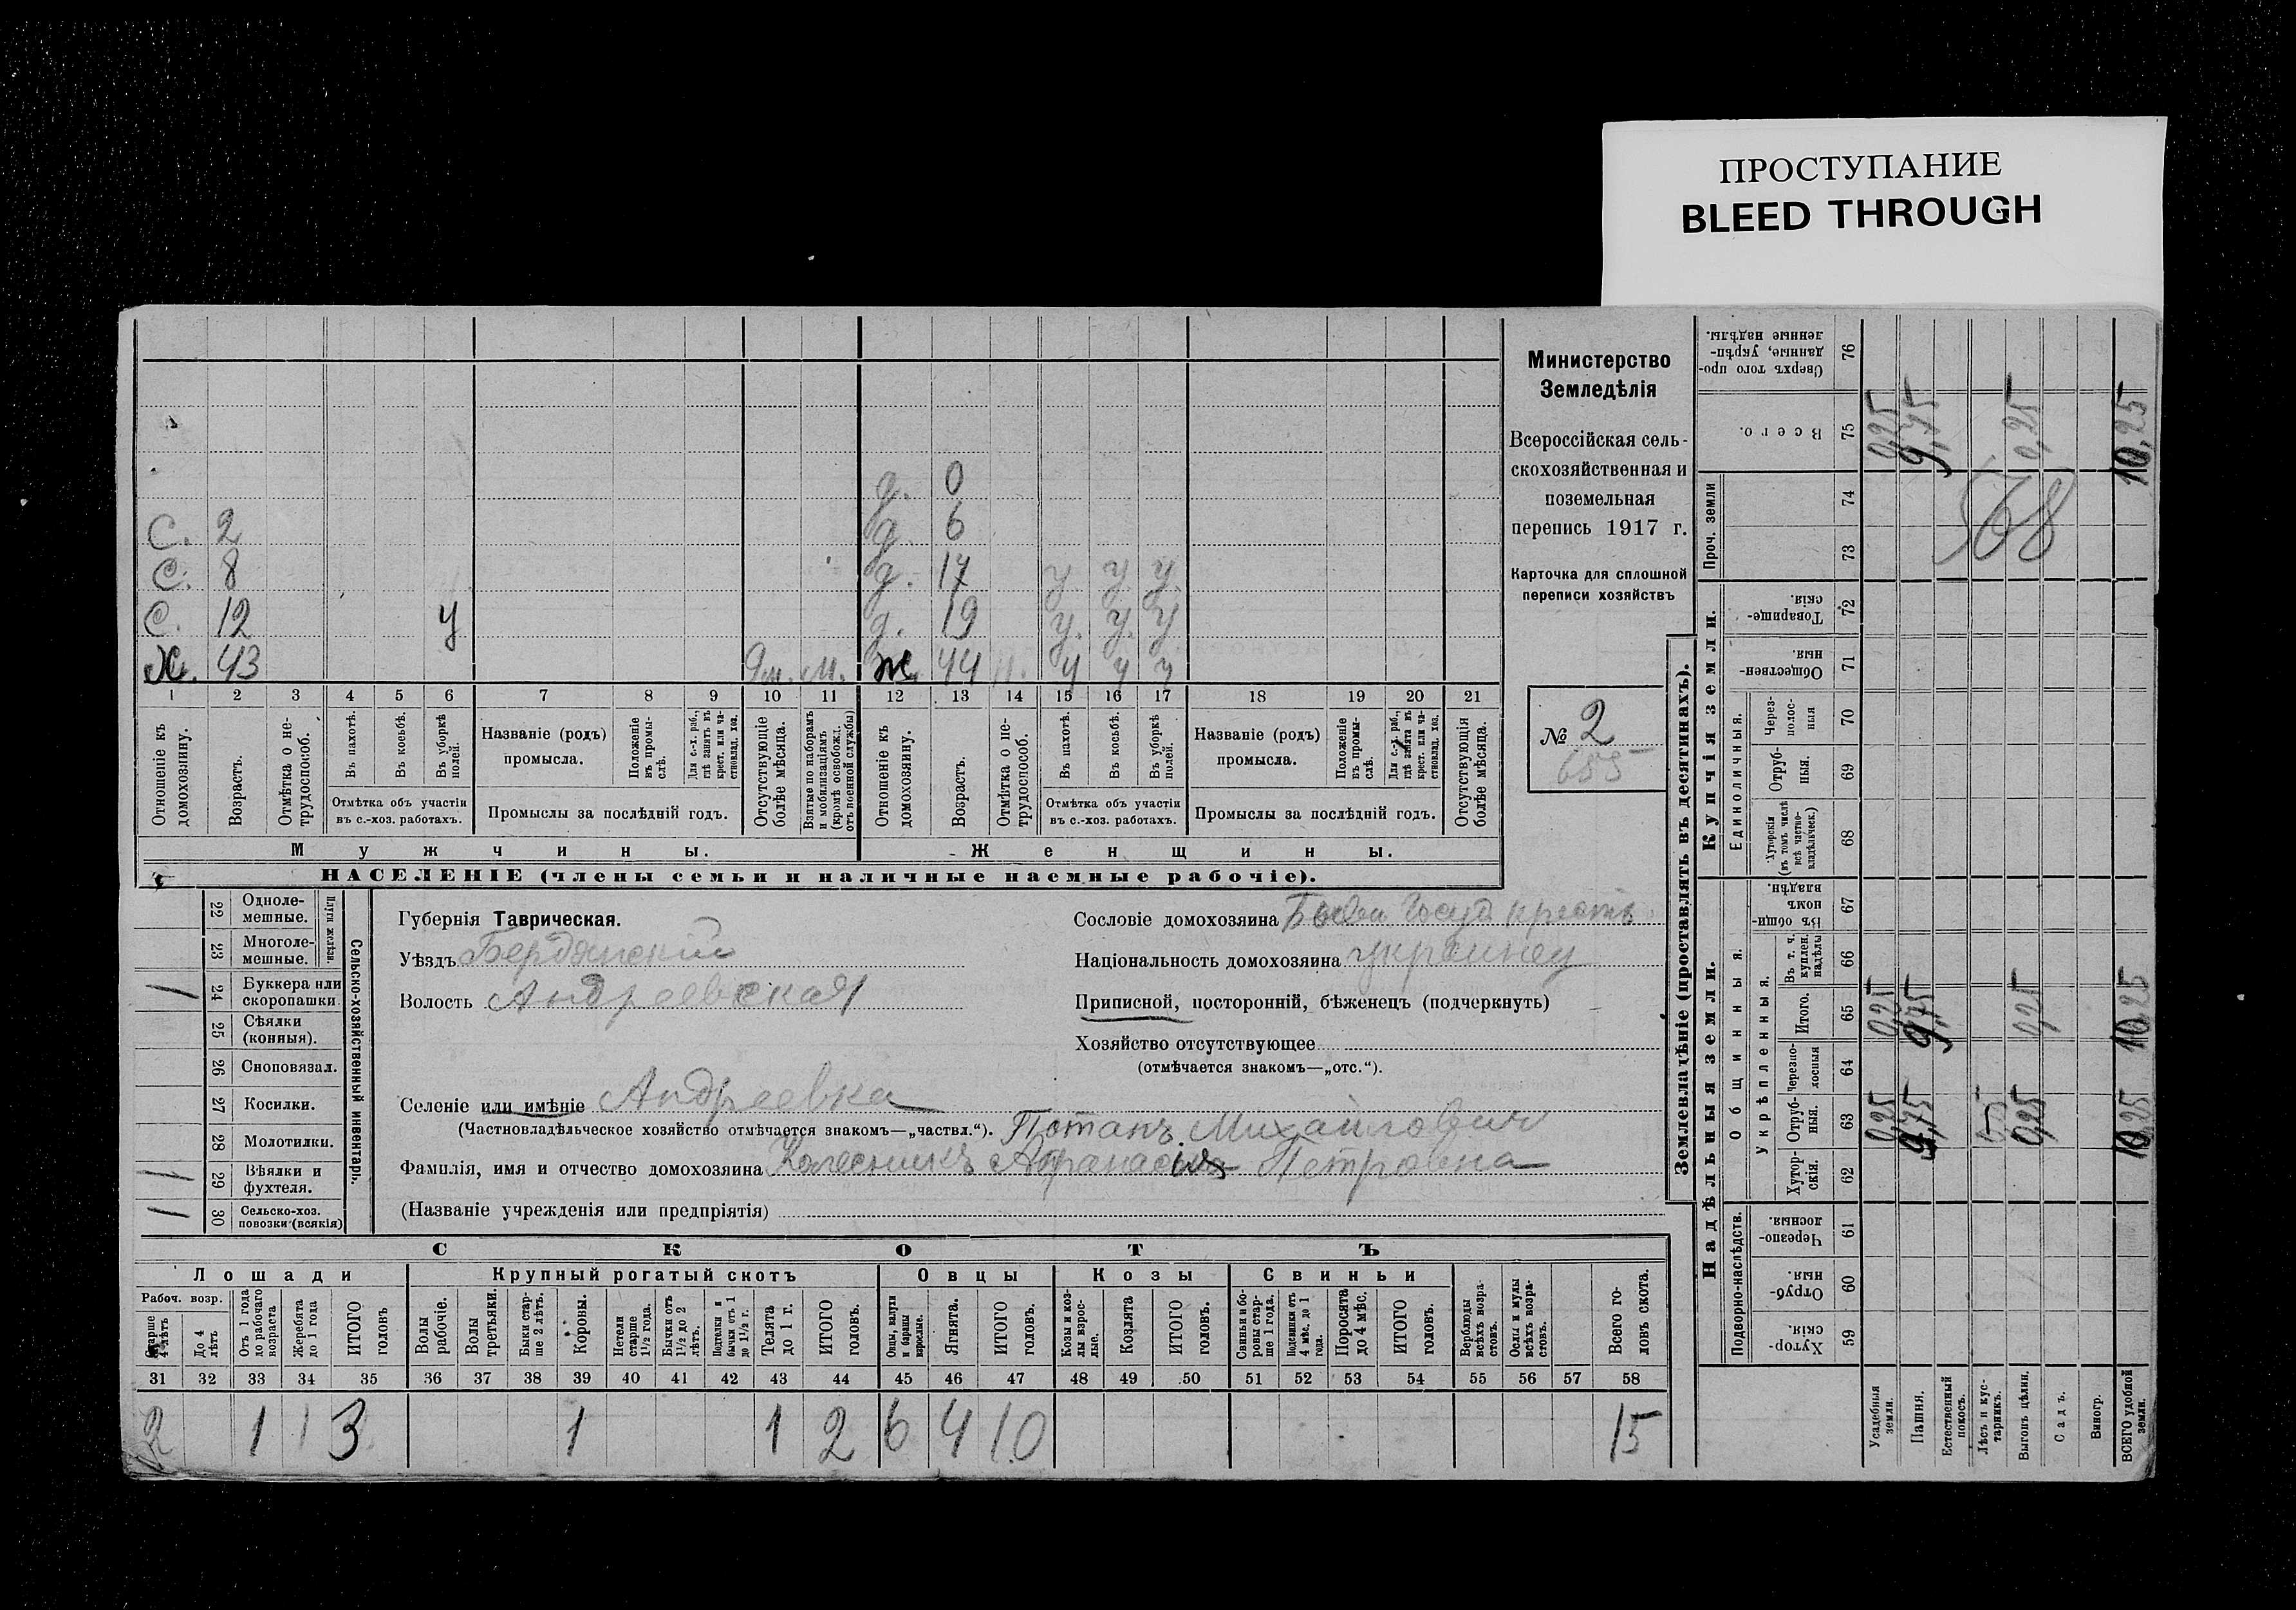 ПРОСТУПАНИЕ
BLEED THROUGH
Министерство
Земледѣлія
Всероссійская сель-
скохозяйственная и
поземельная
перепись 1917 г.
Карточка для сплошной
переписи хозяйствъ
№ 2
655
д. 0
С. 2 д. 6
С. 8 д. 17 у. у. у.
С. 12 у д. 19 у. у. у
Х. 43 9м. М. Ж. 44 у у у
1 2 3 4 5 6 7 8 9 10 11 12 13 14 15 16 17 18 19 20 21
Отношеніе къ домохозяину.
Возрастъ.
Отмѣтка о не-трудоспособ.
Въ пахотѣ.
Въ косьбѣ.
Въ уборкѣ полей.
Отмѣтка объ участіи
въ с.-хоз. работахъ.
Названіе (родъ)
промысла.
Положеніе въ промы-слѣ.
Для с.-х. раб., гдѣ занятъ въ крест. или ча-стновлад. хоз.
Промыслы за послѣдній годъ.
Отсутствующіе болѣе мѣсяца.
Взятые по наборамъ и мобилизаціямъ (кромѣ освобожд. отъ военной службы)
Отношеніе къ домохозяину.
Возрастъ.
Отмѣтка о не-трудоспособ.
Въ пахотѣ.
Въ косьбѣ.
Въ уборкѣ полей.
Отмѣтка объ участіи
въ с.-хоз. работахъ.
Названіе (родъ)
промысла.
Положеніе въ промы-слѣ.
Для с.-х. раб., гдѣ занята въ крест. или ча-стновлад. хоз.
Промыслы за послѣдній годъ.
Отсутствующія болѣе мѣсяца.
Мужчины.
Женщины.
НАСЕЛЕНІЕ (члены семьи и наличные наемные рабочіе).
Сельско-хозяйственный инвентарь.
Плуги желѣзн.
22 Одноле-мешные.
23 Многоле-мешные.
1 24 Буккера или скоропашки.
25 Сѣялки (конныя).
26 Сноповязал.
27 Косилки.
28 Молотилки.
1 29 Вѣялки и фухтеля.
1 30 Сельско-хоз. повозки (всякія)
Губернія Таврическая.
Уѣздъ Бердянскій
Волость Андреевская
Селеніе или имѣніе Андреевка
(Частновладѣльческое хозяйство отмѣчается знакомъ—„частвл.“).
Потапъ Михайлович
Фамилія, имя и отчество домохозяина Колесникъ Афанасія Петровна
(Названіе учрежденія или предпріятія)
Сословіе домохозяина Госуд крестъ
Національность домохозяина украинец
Приписной, посторонній, бѣженецъ (подчеркнуть)
Хозяйство отсутствующее
(отмѣчается знакомъ—„отс.“).
СКОТЪ
Лошади Крупный рогатый скотъ Овцы Козы Свиньи
Рабоч. возр.
Старше 4 лѣтъ
До 4 лѣтъ
Отъ 1 года до рабочаго возраста
Жеребята до 1 года
ИТОГО головъ
Волы рабочіе.
Волы третьяки.
Быки стар-ше 2 лѣтъ.
Коровы.
Нетели старше 1½ года.
Бычки отъ 1½ до 2 лѣтъ.
Подтелки и бычки отъ 1 до 1½ г.
Телята до 1 г.
ИТОГО головъ.
Овцы, валухи и бараны взрослые.
Ягнята.
ИТОГО головъ.
Козы и коз-лы взрос-лые.
Козлята
ИТОГО головъ.
Свиньи и бо-ровы стар-ше 1 года.
Подсвинки отъ 4 мѣс. до 1 года.
Поросята до 4 мѣс.
ИТОГО головъ.
Верблюды всѣхъ возра-стовъ.
Ослы и мулы всѣхъ возра-стовъ.
Всего го-ловъ скота.
31 32 33 34 35 36 37 38 39 40 41 42 43 44 45 46 47 48 49 50 51 52 53 54 55 56 57 58
2 1 3 1 1 2 6 4 10 15
Землевладѣніе (проставлять въ десятинахъ).
Надѣльныя земли.
Купчія земли.
Подворно-наслѣдств.
Общинныя.
Укрѣпленныя.
Единоличныя.
Проч. земли
59 Хутор-скія.
60 Отруб-ныя.
61 Черезпо-лосныя.
62 Хутор-скія.
63 Отруб-ныя.
64 Черезпо-лосныя
65 Итого.
66 Въ т. ч. куплен. надѣлы
67 Въ общин-номъ владѣн.
68 Хуторскія (въ томъ числѣ всѣ частно-владѣльческ.)
69 Отруб-ныя.
70 Через-полос-ныя
71 Обществен-ныя.
72 Товарище-скія.
73
74
75 Всего.
76 Сверхъ того про-данные, укрѣп-ленные надѣлы.
Усадебныя земли. 0,25 0,25 0,25
Пашня. 9,75 9,75 9,75
Естественный покосъ.
Лѣсъ и кус-тарникъ.
Выгонъ цѣлин. 0,25 0,25 0,25
Садъ.
Виногр.
ВСЕГО удобной земли. 10,25 10,25 10,25
568